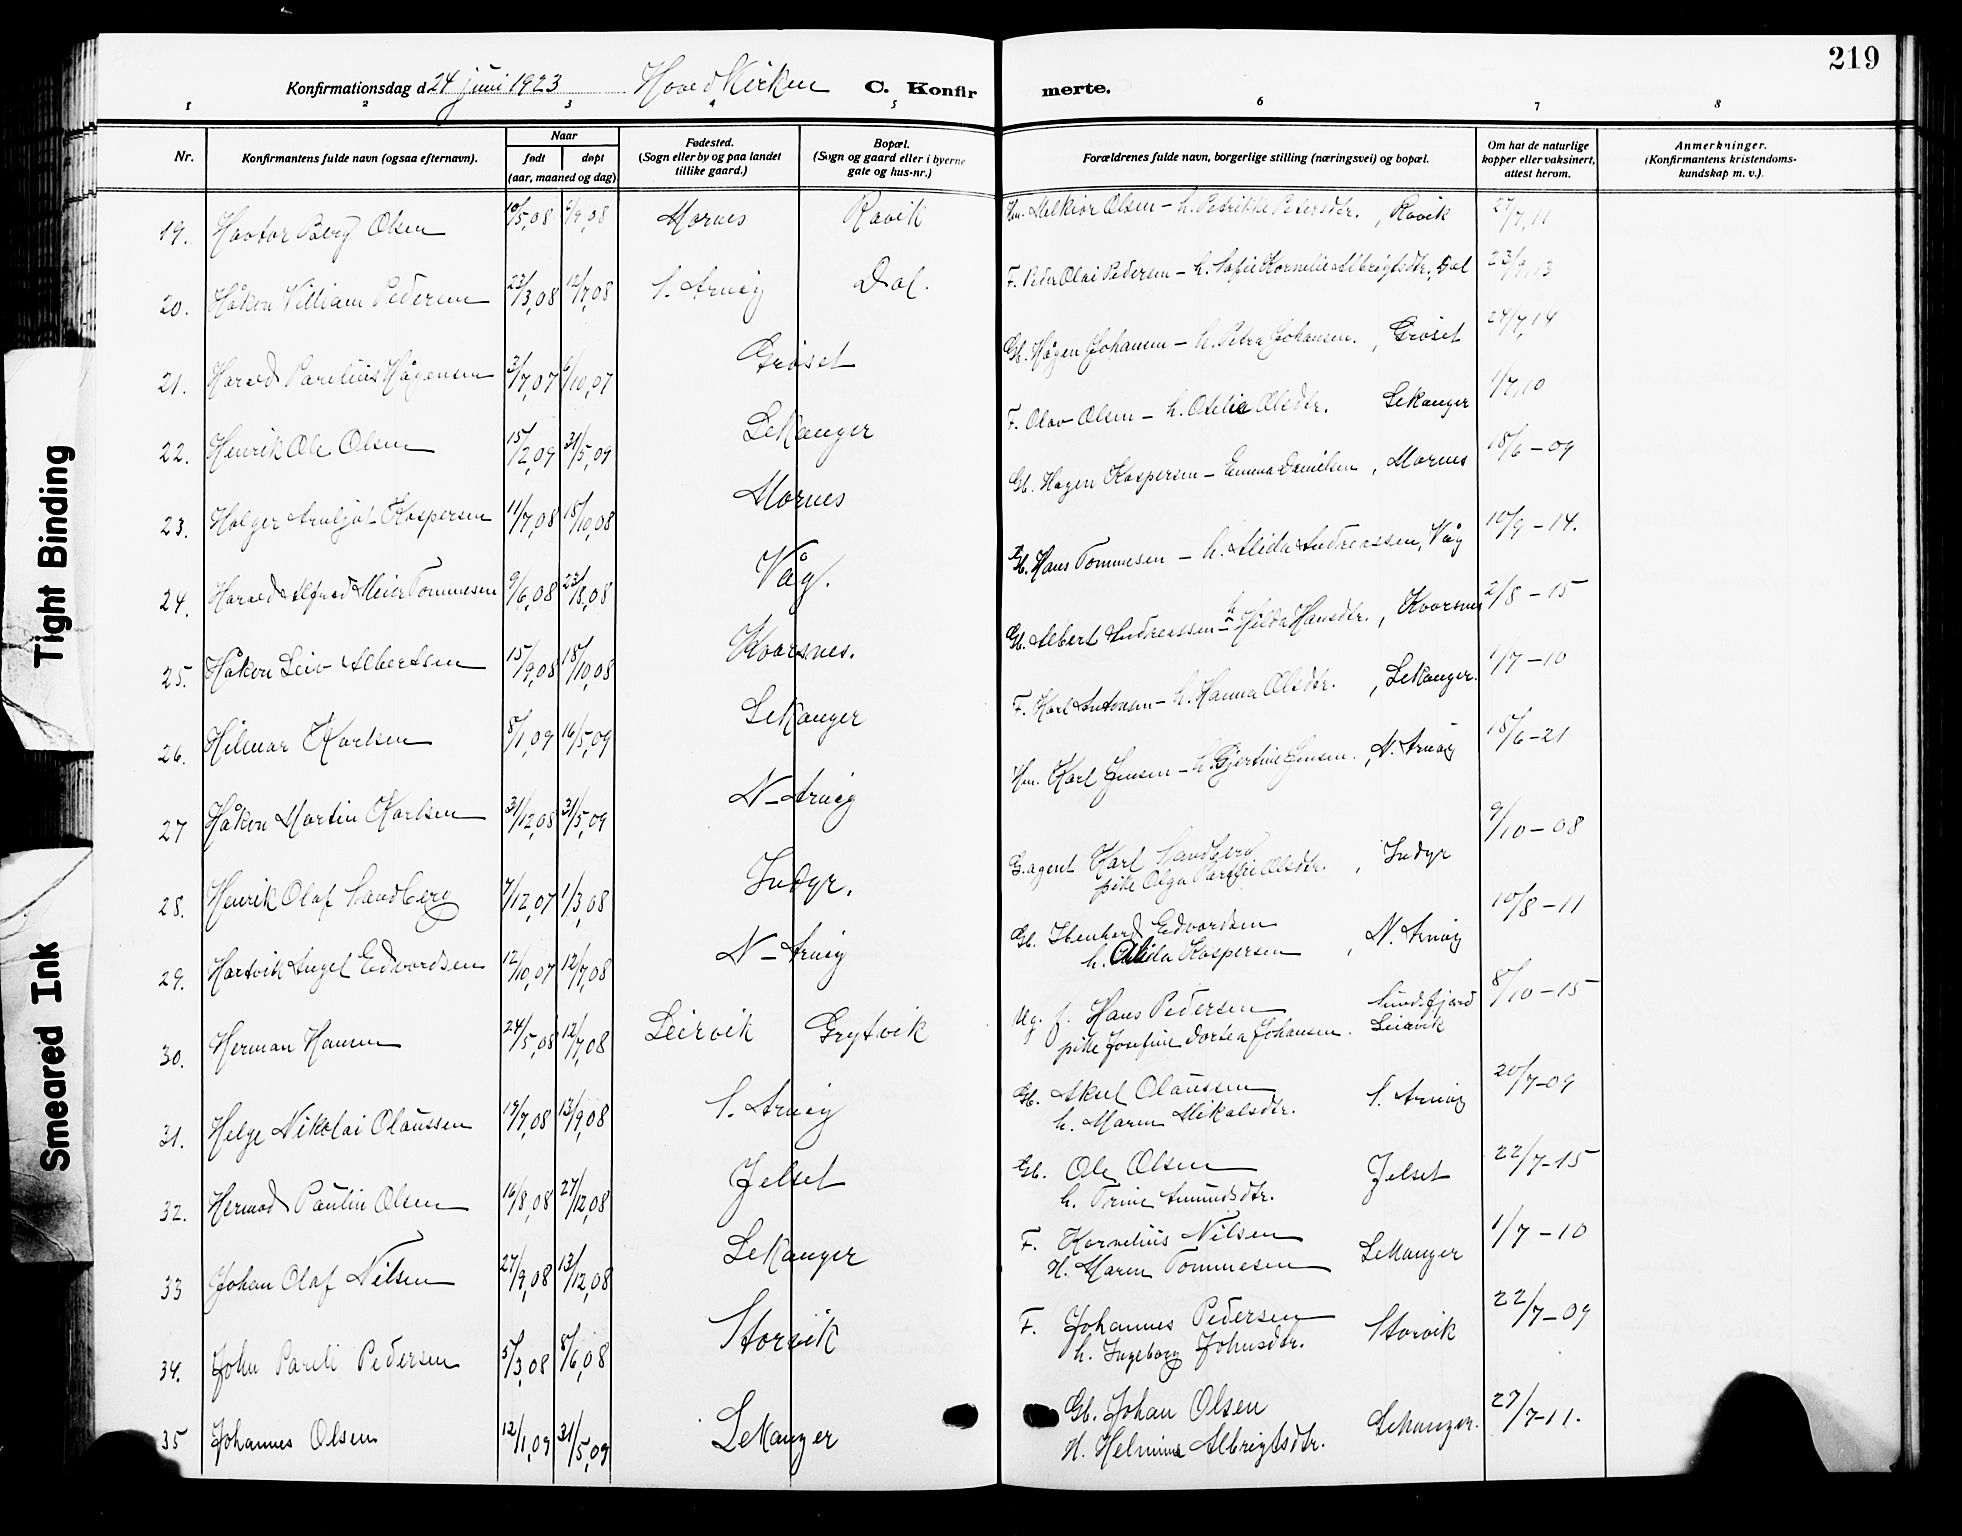 219
Konfirmationsdag d. 24 juni 1923 Hovedkirken C. Konfirmerte.
1 2 3 4 5 6 7 8
Nr. Konfirmantens fulde navn (ogsaa efternavn). Naar født døpt (aar, maaned og dag) Fødested. (Sogn eller by og paa landet tillike gaard.) Bopæl. (Sogn og gaard eller i byerne gate og hus-nr.) Forældrenes fulde navn, borgerlige stilling (næringsvei) og bopæl. Om hat de naturlige kopper eller vaksinert, attest herom. Anmerkninger. (Konfirmantens kristendoms-kundskap m. v.).
19. Havtor Berg Olsen 10/5,08 6/9,08 Mornes Råvik Hm. Melkior Olsen – h. Petrikke Petersdtr., Råvik 27/7,11
20. Håkon Villiam Pedersen 23/3,08 12/7,08 S. Arnøy Dal. F. Peder Olai Pedersen – h. Sofie Kornelie Albrigtsdtr., Dal 23/9,13
21. Harald Parelius Hågensen 3/7,07 6/10,07 Grøset Gb. Hågen Johansen – h. Petra Johansen., Grøset 24/7,14
22. Henrik Ole Olsen 15/2,09 31/5,09 Lekanger F. Olav Olsen – h. Otelie Olsdtr. Lekanger 1/7,10
23. Holger Arnljot Kaspersen 11/7,08 18/10,08 Mornes Gb. Hagen Kaspersen – Emma Danielsen, Mornes 18/6 – 09
24. Harald Alfred Meier Tommesen 9/6,08 23/8,08 Våg. Gb. Hans Tommesen – h. Alida Andreassen, Våg 10/9 – 14.
25. Håkon Leiv Albertsen 15/9,08 18/10,08 Kvarsnes. Gb. Albert Andreassen – h. Hilda Hansdtr., Kvarsnes 2/8 – 15
26. Hilmar Karlsen 8/1,09 16/5,09 Lekanger F. Karl Antonsen – h. Hanna Olsdtr., Lekanger. 1/7 – 10
27 Håkon Martin Karlsen 31/12,08 31/5,09 N – Arnøy Hm. Karl Jensen – h. Gjertine Jensen., N. Arnøy 18/6 – 21
28. Henrik Olaf Sandberg 7/12,07 1/3,08 Indyr. G. agent Karl Sandberg
pike Olga Olsdtr., Indyr 9/10 – 08
29. Hartvik Angel Edvardsen 12/10,07 12/7,08 N – Arnøy Gb. Ibenhard Edvardsen
h. Alida Kaspersen, N. Arnøy 10/8 – 11
30. Herman Hansen 24/5,08 12/7,08 Leirvik Grytvik Ug. f. Hans Pedersen Sundsfjord
pike Josefine Dortea Johansen. Leirvik 8/10 – 15
31. Helge Nikolai Olaussen 19/7,08 13/9,08 S. Arnøy Gb. Aksel Olaussen
h. Maren Mikalsdtr. S. Arnøy 20/7-09
32. Hermod Paulin Olsen 16/8,08 27/12,08 Jelset Gb. Ole Olsen
h. Trine Amundsdtr. Jelset 22/7-15
33 Johan Olaf Nilsen 27/9,08 13/12,08 Lekanger F. Kornelius Nilsen
H. Maren Tommesen Lekanger 1/7 – 10
34. John Pareli Pedersen 5/3,08 8/6,08 Storvik F. Johannes Pedersen
h. Ingeborg Johnsdtr. Storvik 22/7-09
35 Johannes Olsen 12/1,09 31/5,09 Lekanger Gb. Johan Olsen
H. Helmine Albrigtsdtr. Lekanger. 27/7-11.
Tight Binding
Smeared Ink